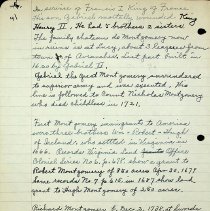 41
in service of Francis I King of France
His son Gabriel mortally wounded King
Henry II. He had 5 brothers 2 sisters
The family chateau de Montgomery now
in ruins is at Ducy, about 3 leagues from
town of Avranches, last part built in
1620 by Gabriel II.
Gabriel the Great Montgomery surrendered
to superior army and was executed, this
line is followed to Count Nicholas Montgomery
who died childless in 1721.
First Montgomery immigrants to America
were three brothers Wm - Robert - Hugh
of Ireland, who settled in Virginia in
1666. Records Virginia Land Office
Colonial Series No 6, p. 678. show a grant to
Robert Montgomery of 850 acres Apr 21, 1677
Same records No 7 p. 515 in 1687 show land
grant to Hugh Montgomery of 250 acres.
Richard Montgomery b. Dec 2, 1738, at